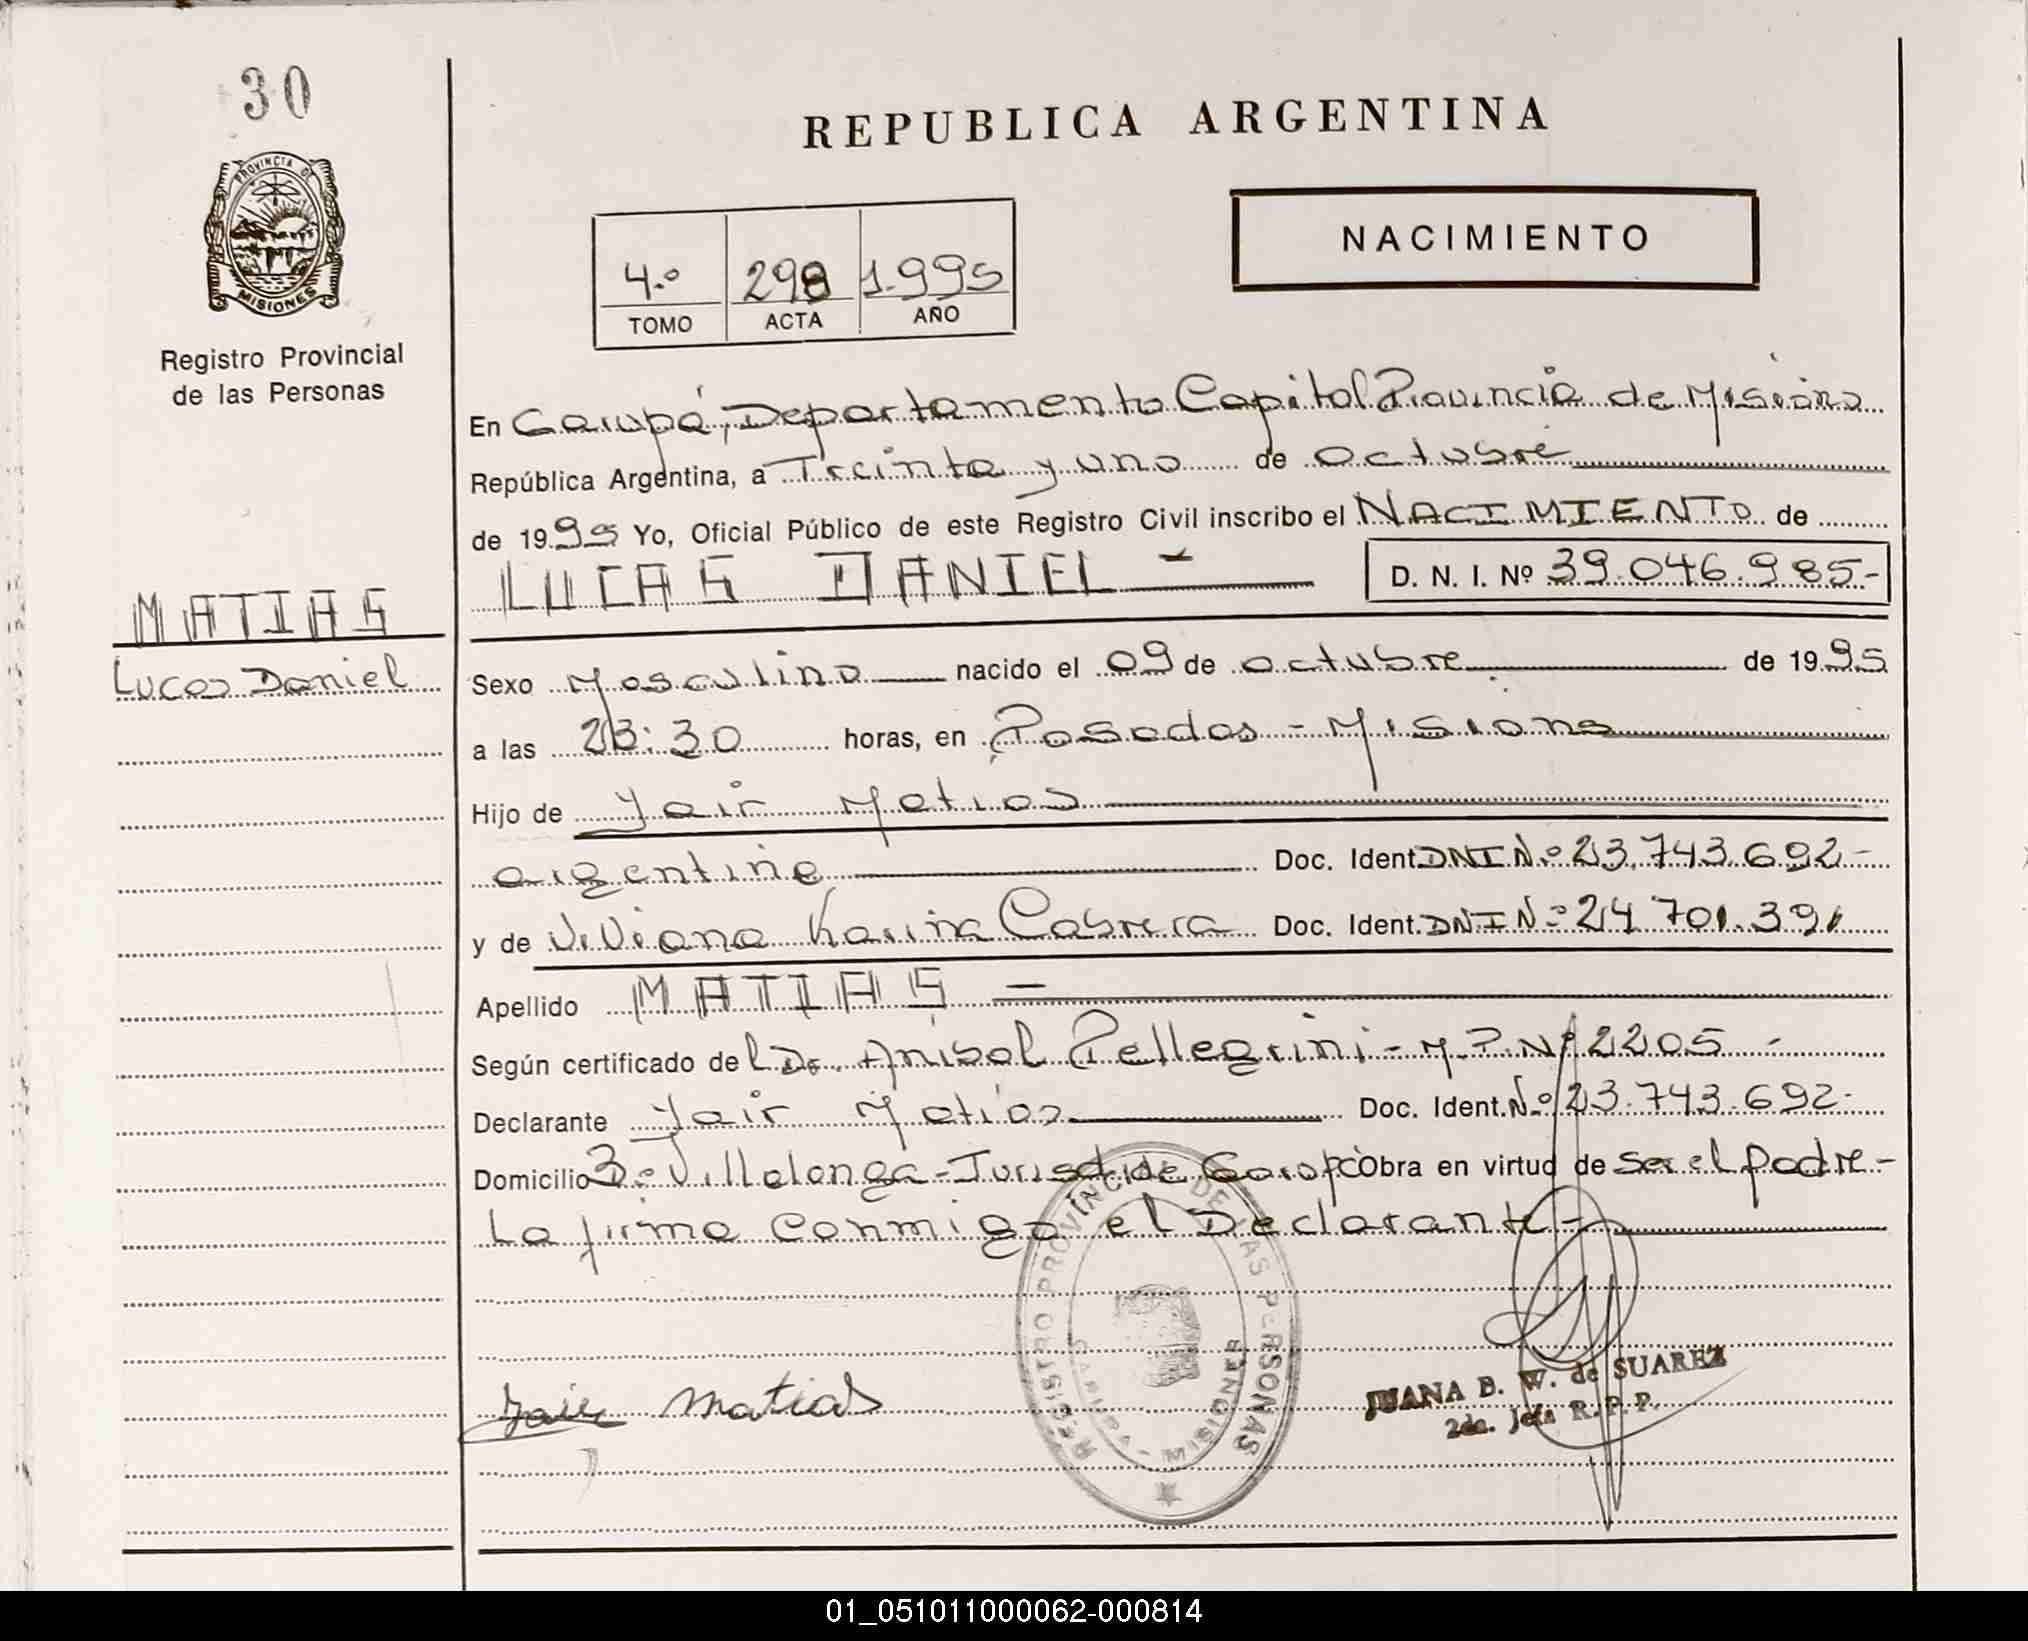 30
REPUBLICA ARGENTINA
PROVINCIA DE
MISIONES
Registro Provincial
de las Personas
NACIMIENTO
4.º 298 1.995
TOMO ACTA AÑO
En Garupá, Departamento Capital Provincia de Misiones
República Argentina, a Treinta y uno de octubre
de 1995 Yo, Oficial Público de este Registro Civil inscribo el NACIMIENTO de
LUCAS DANIEL - D. N. I. Nº 39.046.985.-
MATIAS
Lucas Daniel
Sexo Masculino nacido el 09 de octubre de 1995
a las 23:30 horas, en Posadas - Misiones
Hijo de Yair Matias
argentino Doc. Ident. DNI N.º 23.743.692-
y de Viviana Karina Cabrera Doc. Ident. DNI Nº 24.701.391
Apellido MATIAS -
Según certificado del Dr. Anibal Pellegrini - M.P. Nº 2205 -
Declarante Yair Matias Doc. Ident. N.º 23.743.692-
Domicilio Bº Villalonga - Jurisd. de Garupá Obra en virtud de ser el padre -
La firma conmigo el Declarante -
REGISTRO PROVINCIAL DE LAS PERSONAS
Yair Matias
JUANA B. W. de SUAREZ
2da. Jefa R.P.P.
01_051011000062-000814